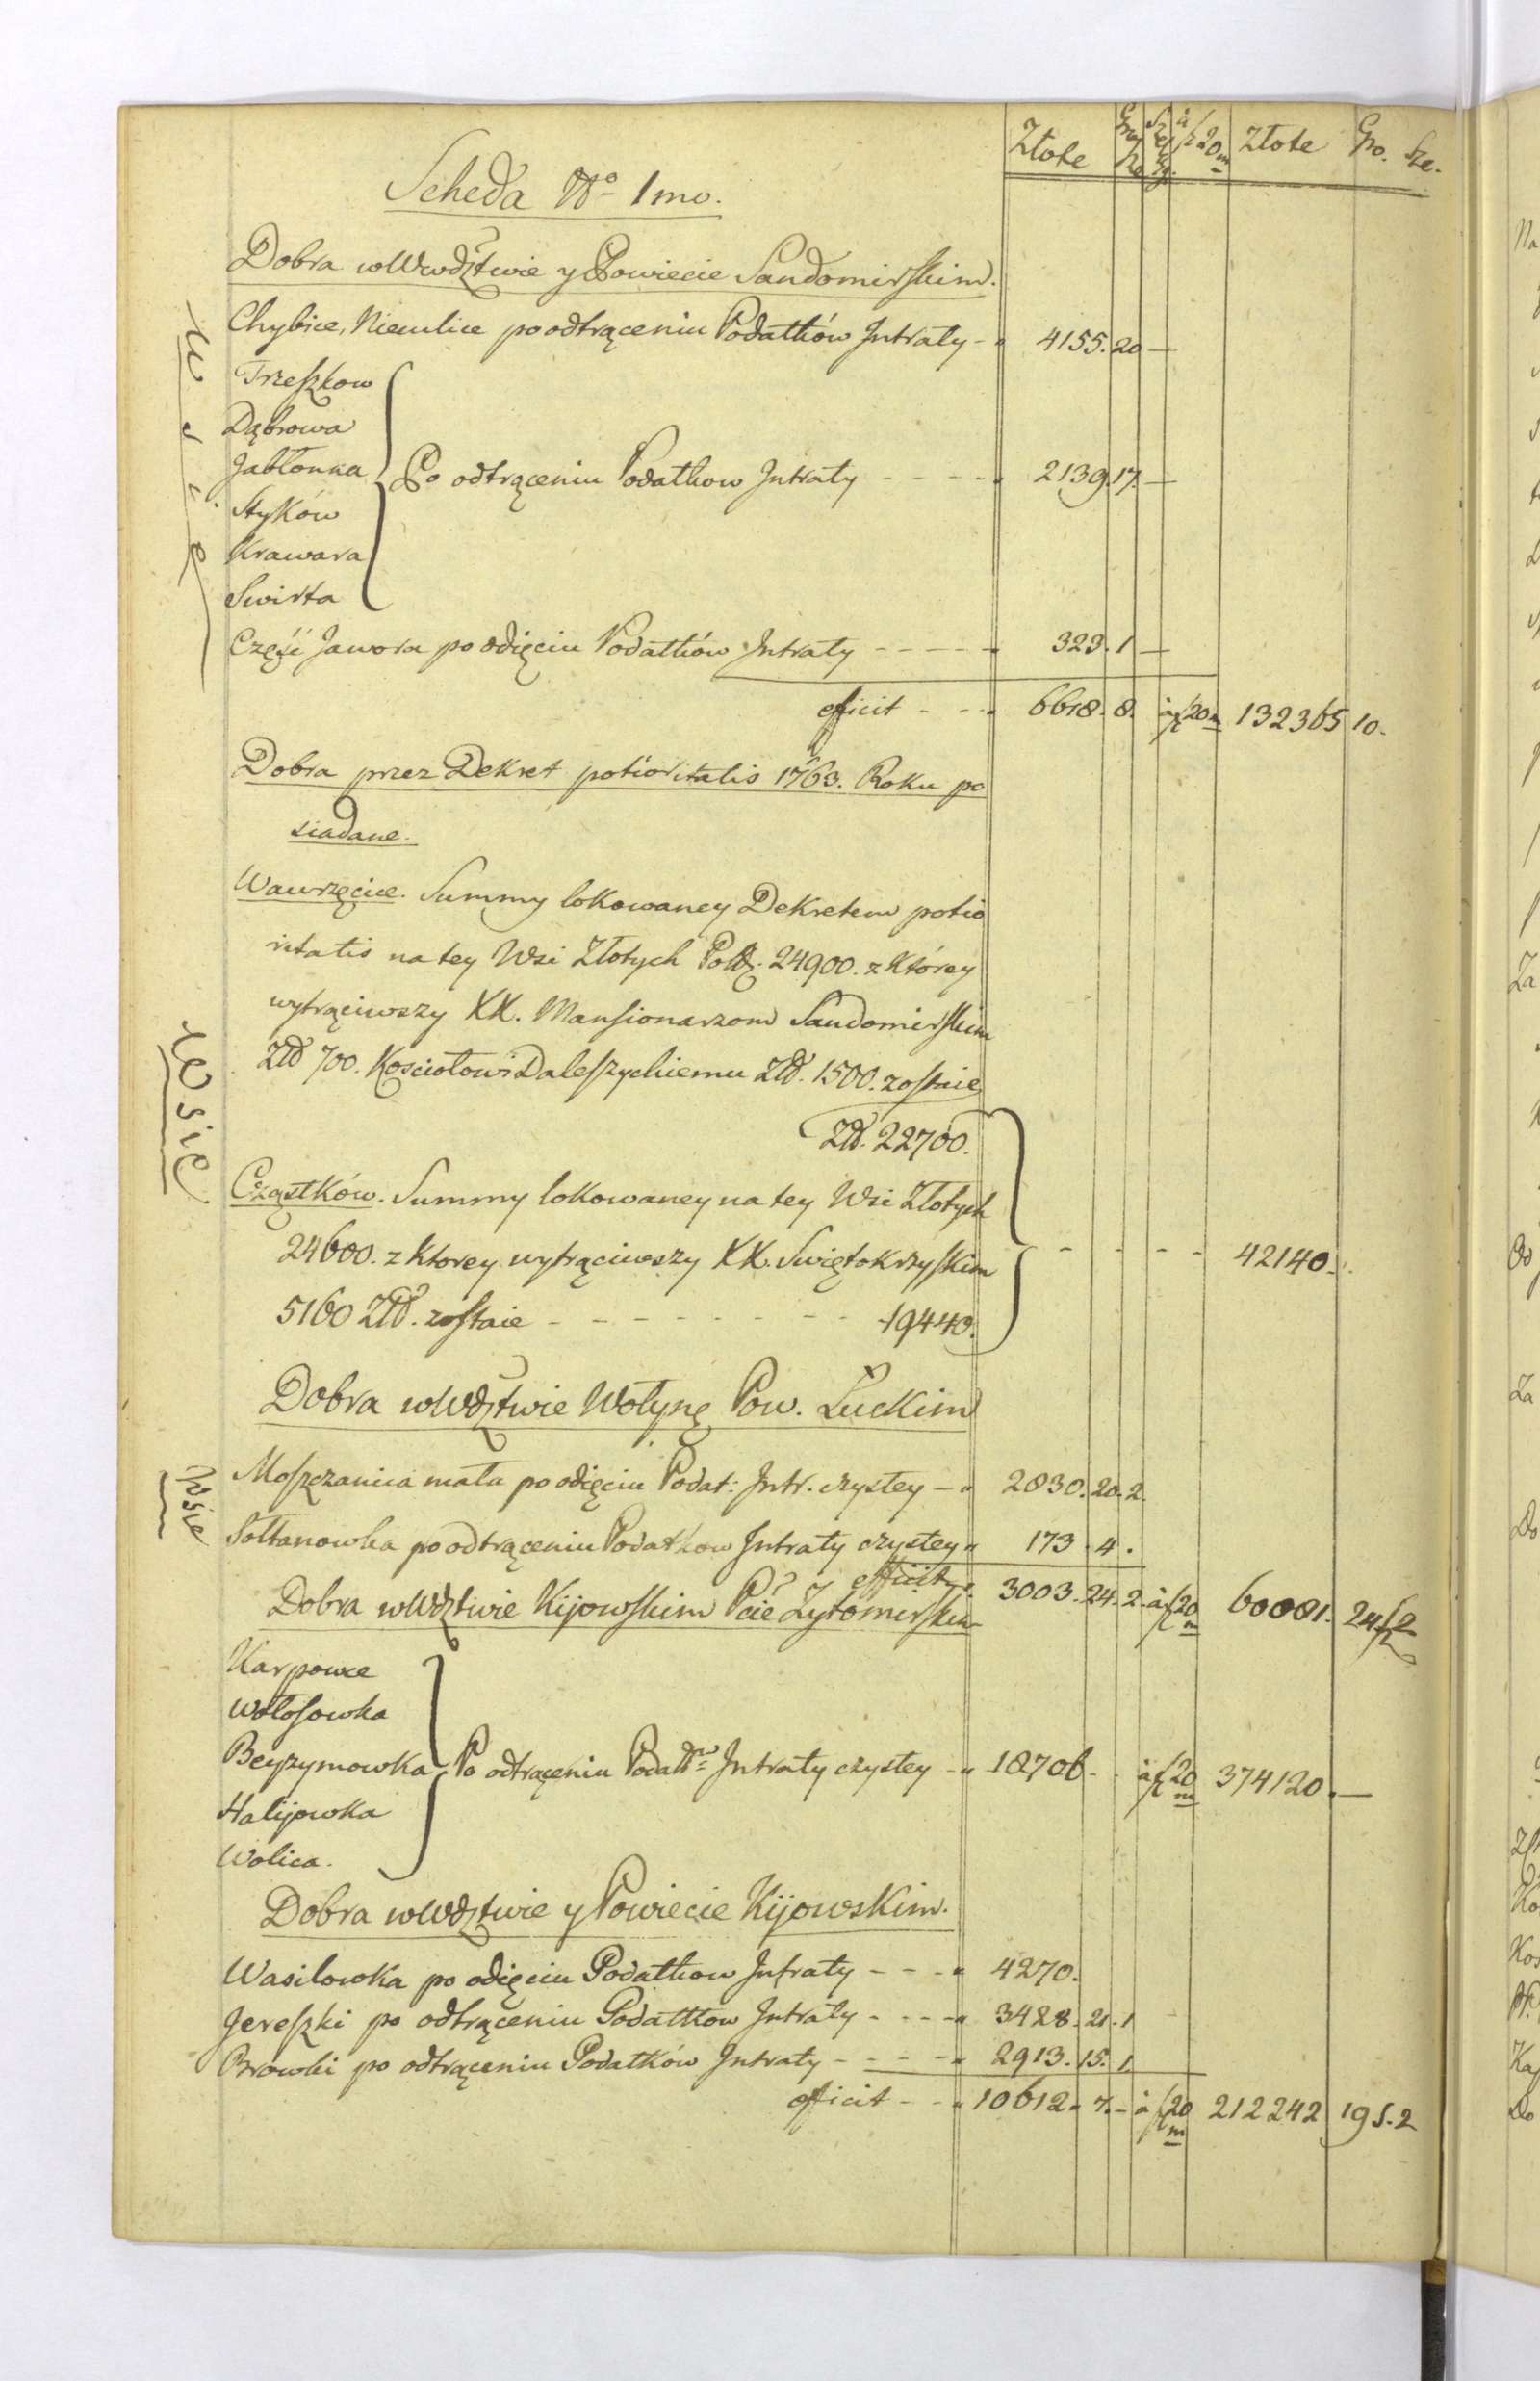 Złote Grosze Szelągi à pr 20 m Złote Gro. Sze.
Scheda No 1mo.
Dobra w Wwdztwie y Powiecie Sandomirskim.
Chybice, Niemlice po odtrąceniu Podatków Intraty - 4155. 20 —
Trzeszkow
Dąbrowa
Jabłonna Po odtrąceniu Podatkow Intraty - - - - 2139. 17. —
Styków
Krawara
Swirta
Część Jawora po odięciu Podatków Intraty - - - - - 323. 1 —
efficit - - - 6618. 8. à pr 20 m 132365 10.
Dobra przez Dekret potioritatis 1763. Roku po
siadane.
Wawrzęcice. Summy lokowaney Dekretem potio
ritatis na tey Wsi Złotych Pols. 24900. z którey
wytrąciwszy XX. Mansionarzom Sandomirskim
Złt 700. Kosciołowi Daleszyckiemu Złt. 1500. zostaie
Złt. 22700.
Cząstków. Summy lokowaney na tey Wsi Złotych
24600. z ktorey wytrąciwszy XX. Swiętokrzyskim - - - - 42140.
5160 Złt. zostaie - - - - - - - - 19440.
Dobra w Wdztwie Wołynę Pow. Łuckim
Moszczanica mała po odięciu Podat: Intr. czystey — 2830. 20. 2.
Sołtanowka po odtrąceniu Podatkow Intraty czystey 173. 4.
efficit 3003. 24. 2. à pr 20 m 60081. 24 s 2
Dobra w Wdztwie Kijowskim Pcie Zytomirskim
Karpowce
Wołosowka
Beyzymowka Po odtrąceniu Podatkw Intraty czystey - 18706. - à pr 20 m 374120. —
Halijowka
Wolica.
Dobra w Wdztwie y Powiecie Kijowskim.
Wasilowka po odięciu Podatkow Intraty - - - 4270.
Jereszki po odtrąceniu Podatkow Intraty - - - - 3428. 21. 1
Browki po odtrąceniu Podatków Intraty - - - - - 2913. 15. 1.
efficit - - 10612. 7. - à pr 20 m 212242 19 s. 2
Wsie
Wsie